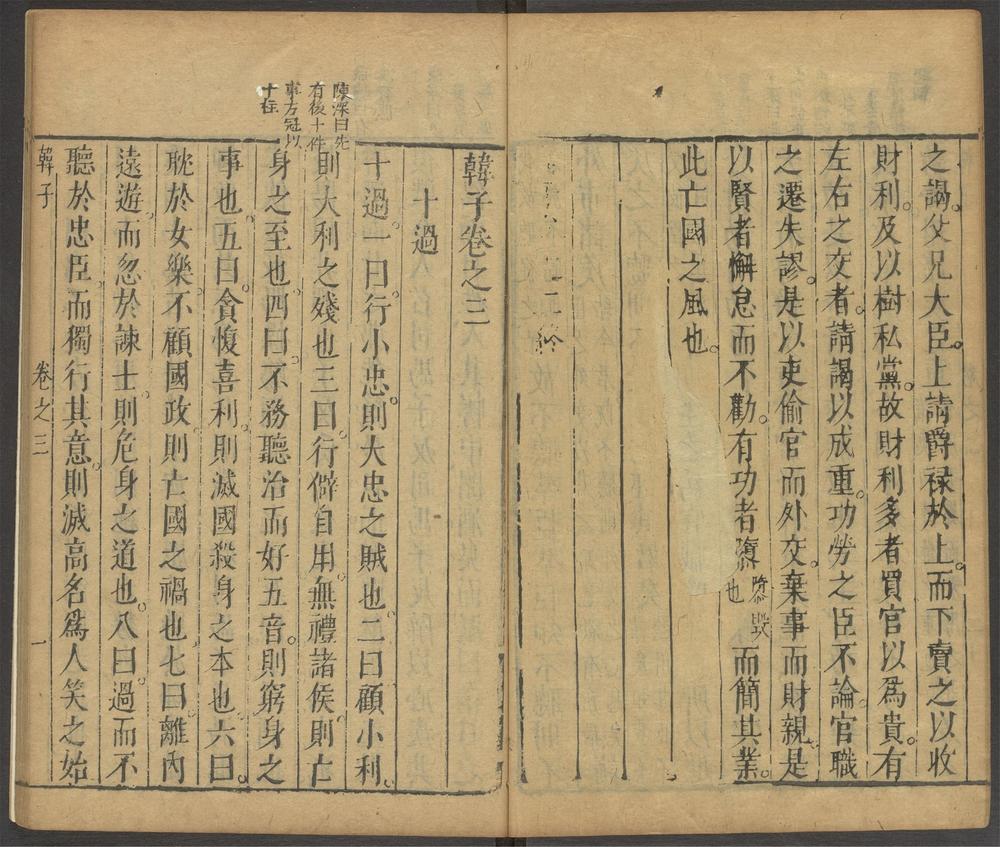 之謁父兄大臣。上請爵祿於上。而下賣之以收
財利。及以樹私黨。故財利多者買官以為貴。有
左右之交者。請謁以成重。功勞之臣不論。官職
之遷失謬。是以吏偷官而外交。棄事而財親。是
以賢者懈怠而不勸。有功者隳
隳毀
也
而簡其業。
此亡國之風也。
二終
韓子卷之三
十過
陳深曰先
有後十件
事方冠以
十過。一曰。行小忠。則大忠之賊也。二曰顧小利。
則大利之殘也三曰行僻自用。無禮諸侯。則亡
身之至也。四曰。不務聽治而好五音。則窮身之
事也。五曰。貪愎喜利。則滅國殺身之本也。六曰。
耽於女樂。不顧國政。則亡國之禍也。七曰。離內
遠遊。而忽於諫士。則危身之道也。八曰。過而不
聽於忠臣。而獨行其意。則滅高名為人笑之始
韓子
卷之三
一